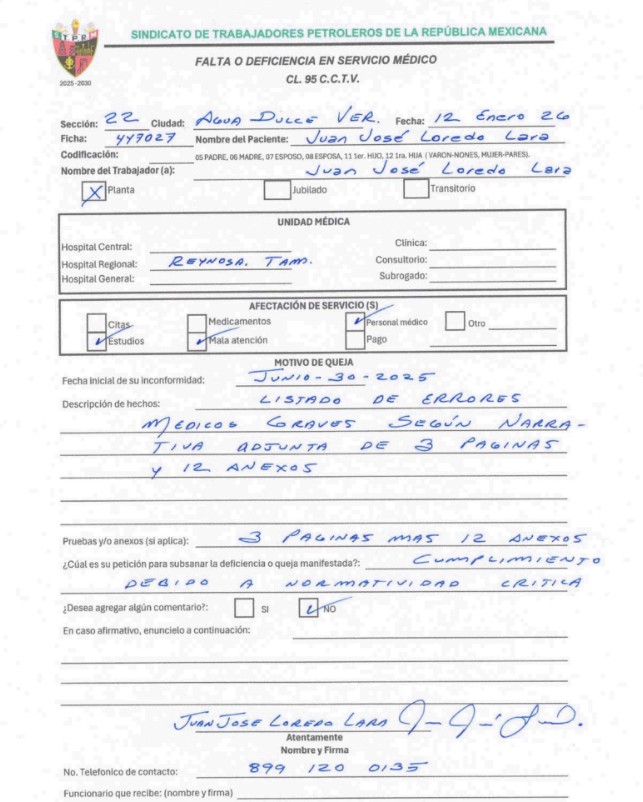 S T P R M
2025-2030
SINDICATO DE TRABAJADORES PETROLEROS DE LA REPÚBLICA MEXICANA
FALTA O DEFICIENCIA EN SERVICIO MÉDICO
CL. 95 C.C.T.V.
Sección: 22 Ciudad: AGUA DULCE VER. Fecha: 12 Enero 26
Ficha: 447027 Nombre del Paciente: Juan José Loredo Lara
Codificación: 05 PADRE, 06 MADRE, 07 ESPOSO, 08 ESPOSA, 11 1er. HIJO, 12 1ra. HIJA ( VARON-NONES, MUJER-PARES).
Nombre del Trabajador (a): Juan José Loredo Lara
X Planta Jubilado Transitorio
UNIDAD MÉDICA
Hospital Central: Clínica:
Hospital Regional: REYNOSA. TAM. Consultorio:
Hospital General: Subrogado:
AFECTACIÓN DE SERVICIO (S)
Citas Medicamentos ✓ Personal médico Otro
✓ Estudios ✓ Mala atención Pago
MOTIVO DE QUEJA
Fecha Inicial de su inconformidad: JUNIO-30-2025
Descripción de hechos: LISTADO DE ERRORES
MEDICOS GRAVES SEGÚN NARRA-
TIVA ADJUNTA DE 3 PAGINAS
Y 12 ANEXOS
Pruebas y/o anexos (si aplica): 3 PAGINAS MAS 12 ANEXOS
¿Cuál es su petición para subsanar la deficiencia o queja manifestada?: CUMPLIMIENTO
DEBIDO A NORMATIVIDAD CRITICA
¿Desea agregar algún comentario?: SI ✓ NO
En caso afirmativo, enuncielo a continuación:
JUAN JOSE LOREDO LARA
Atentamente
Nombre y Firma
No. Telefonico de contacto: 899 120 0135
Funcionario que recibe: (nombre y firma)